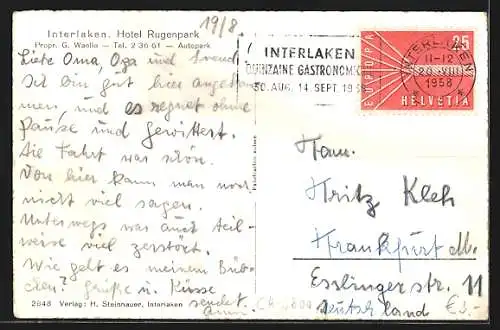 19/8
Interlaken. Hotel Rugenpark
Propr. G. Waelle — Tel. 2 36 61 — Autopark
Liebe Oma, Opa und
ist bin gut hier angekom
men, und es regnet ohne
Pause und gewittert.
Die Fahrt war schön.
Von hier kann man noch
nicht viel sagen.
Unterwegs war auch teil-
weise viel zerstört.
Wie geht es meinem Büb-
chen? Grüße u. Küsse
sendet
2848 Verlag: H. Steinhauer, Interlaken
INTERLAKEN
QUINZAINE GASTRONOMI
30. AUG. 14. SEPT. 19
EUROPA
25
HELVETIA
INTERLAKEN
11-12
20. VIII
1958
Fam.
Fritz Kleh
Frankfurt M.
Esslinger str. 11
Deutschland
€3.-